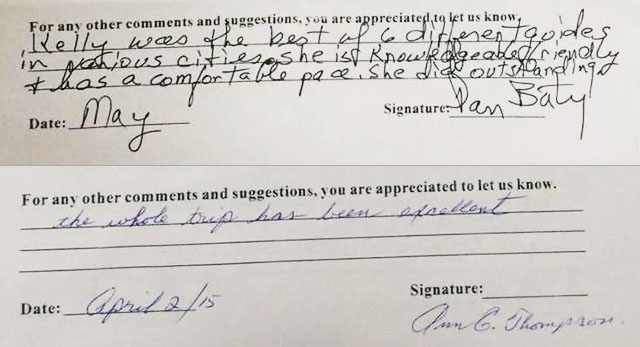 For any other comments and suggestions, you are appreciated to let us know.
Kelly was the best of 6 different guides
in various cities. She is Knowledgeable, friendly
+ has a comfortable pace. She did outstanding.
Date: May
Signature: Dan Baty
For any other comments and suggestions, you are appreciated to let us know.
the whole trip has been excellent
Date: April 2/15
Signature:
Ann C. Thompson.